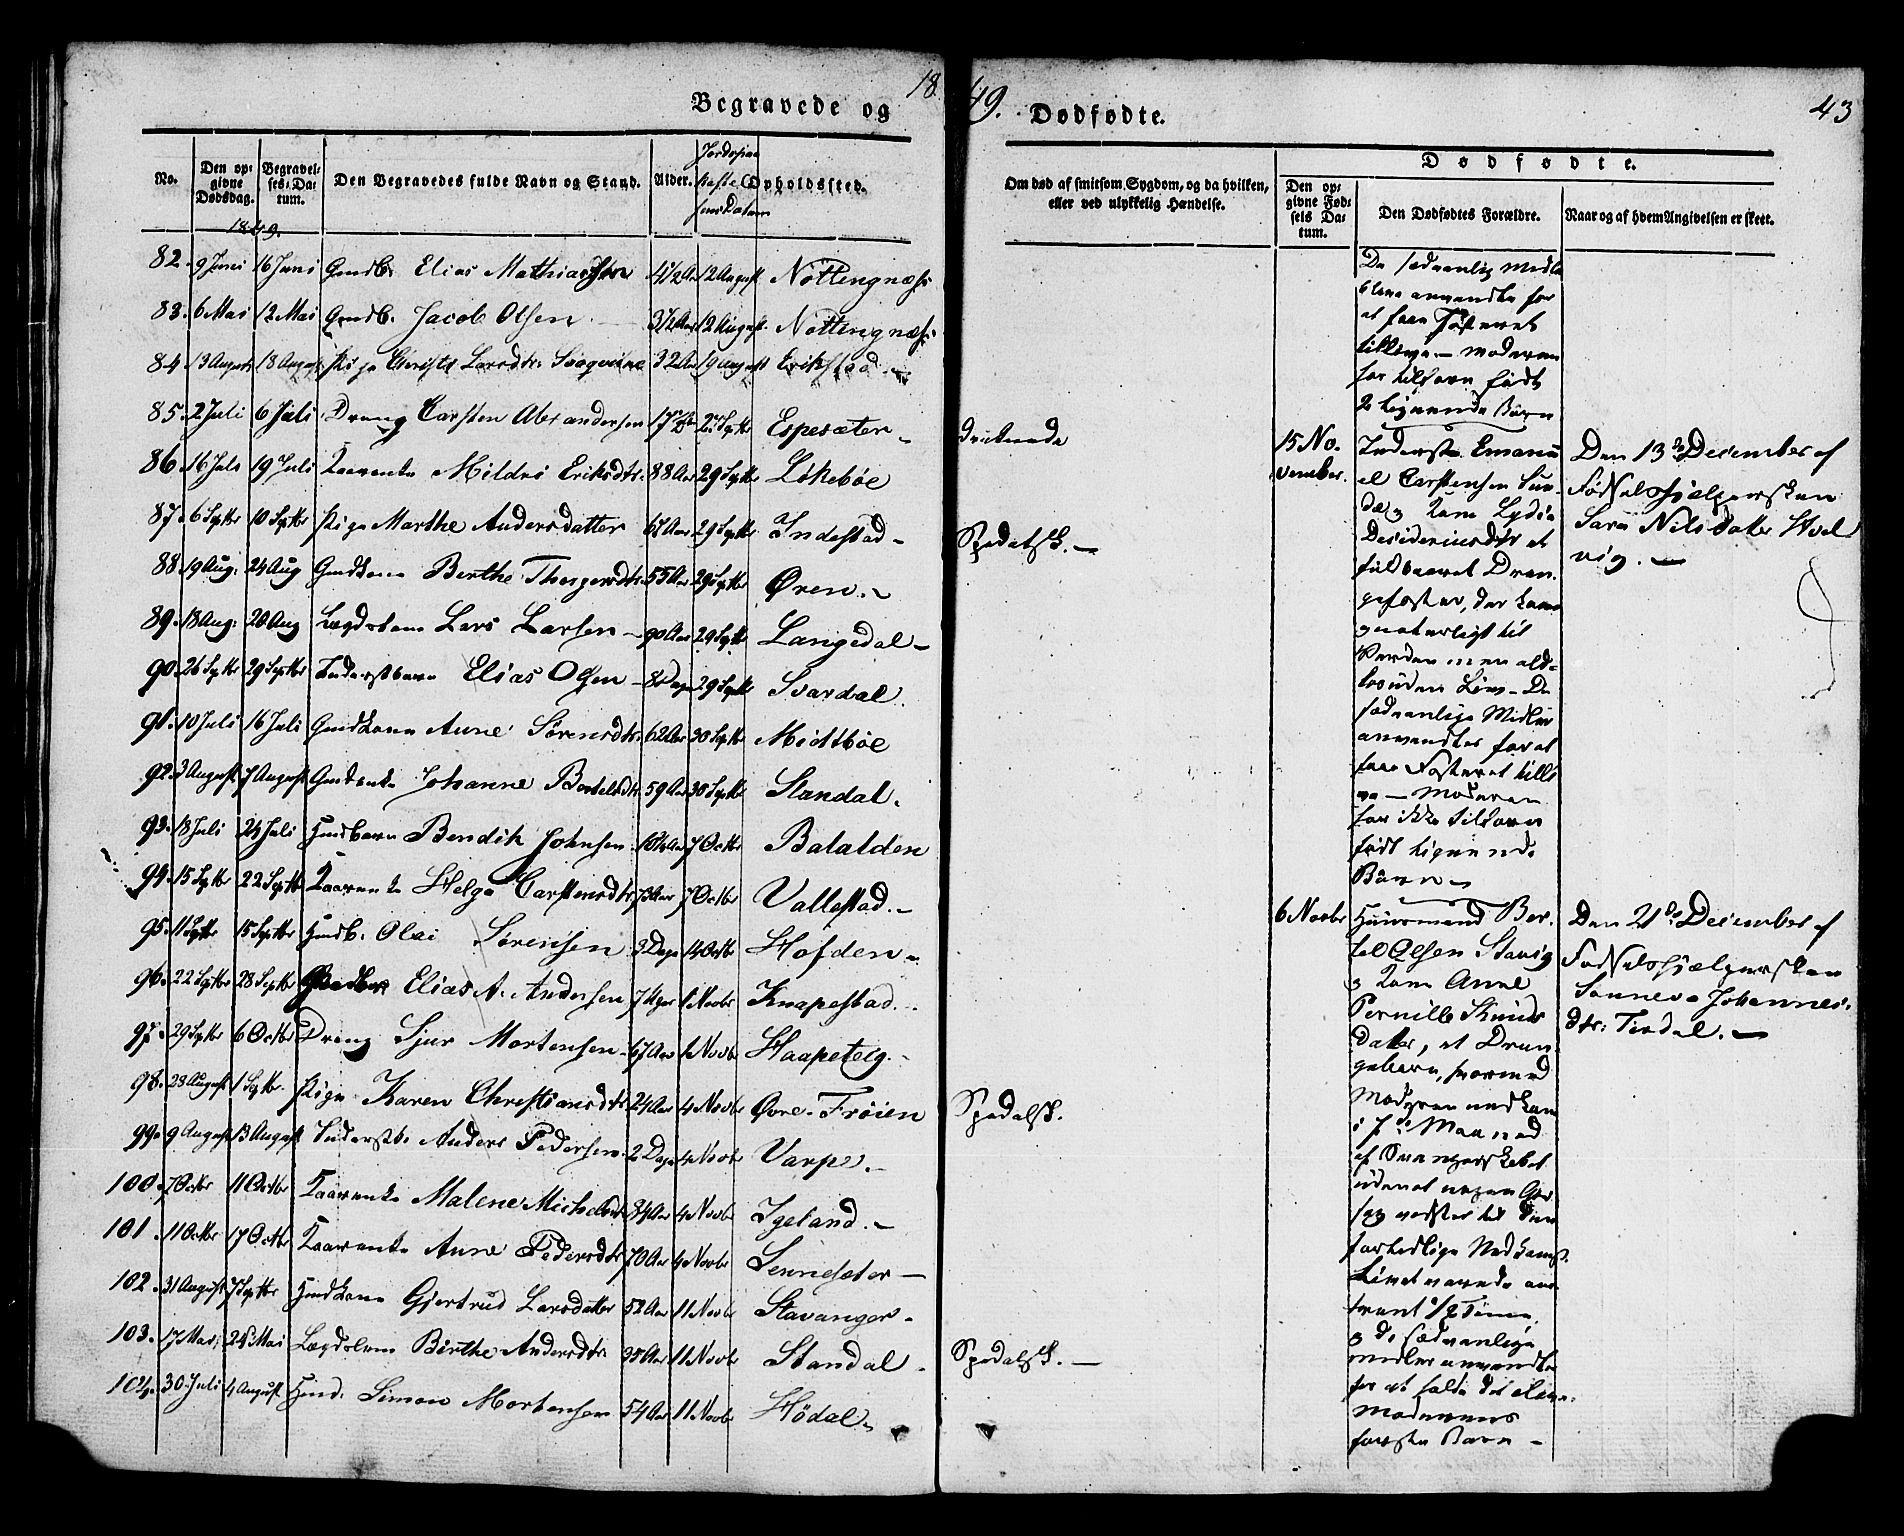 Begravede og 18
49. Dødfødte. 43
No. Den opgivne Dødsdag. Begravelses-Datum. Den Begravedes fulde Navn og Stand. Alder. Jordspaakastelsens Datum Opholdssted.
Om død af smitsom Sygdom, og da hvilken, eller ved ulykkelig Hændelse.
Dødfødte.
Den opgivne Fødsels Datum. Den Dødfødtes Forældre. Naar og af hvem Angivelsen er skeet.
1849.
82. 9 Juni 16 Juni Gmdb. Elias Mathiassen 4 1/2 Aar 12 August Nøttingnæss
83. 6 Mai 12 Mai Gmdb. Jacob Olsen 3 1/2 Aar 12 August Nøttingnæss
84 13 August 18 August Pige Christi Larsdtr: 32 Aar 19 August Erikstad
85. 2 Juli 6 Juli Dreng Carsten Abrandersen 2 Septbr Espesæter druknede
86. 16 Juli 19 Juli Kaarenke Mildri Eriksdtr. 88 Aar 29 Septbr Løkebøe
87. 6 Septbr 10 Septbr Pige Marthe Andersdatter 61 Aar 29 Septbr Indestad Spedalsk.
88 19 Aug: 24 Aug Gmdkone Berthe Thorgersdtr. 55 Aar 29 Septbr Øren.
89. 18 Aug: 20 Aug Lægdslem Lars Larsen 90 Aar 29 Septbr Langedal
90. 26 Septbr 29 Septbr Inderstbarn Elias Olsen 8 Dage 29 Septbr Svardal.
91. 10 Juli 16 Juli Gmdkone Anne Sørensdtr. 62 Aar 30 Septbr Midtbøe
92. 3 August 7 August Gmdenke Johanne Bertelsdtr. 59 Aar 30 Septbr Standal.
93. 18 Juli 24 Juli Hmdbarn Bendik Johnsen 7 Octbr Batalden
94. 15 Septbr 22 Septbr Kaarenke Helga Carstensdtr. 73 Aar 7 Octbr Vallestad.
95. 11 Septbr 15 Septbr Hmdb. Olai Sørensen 3 Dage 14 Octbr Hofden
96. 22 Septbr 28 Septbr Elias A. Andersen 7 Uger 1 Novbr Knapestad.
97. 29 Septbr 6 Octbr Dreng Sjur Mortensen 1 Novbr Haapeteig.
98. 28 August 1 Septbr. Pige Karen Christiansdtr 24 Aar 4 Novbr Øvre-Frøien Spedalsk.
99. 9 August 13 August Inderstb. Anders Pedersen 2 Dage 4 Novbr Varpe.
100. 7 Octbr 11 Octbr Kaarenke Malene Michelsdtr 84 Aar 4 Novbr Igeland.
101. 11 Octbr 17 Octbr Kaarenke Anne Pedersdtr 70 Aar 4 Novbr Sennesæter
102. 31 August 7 Septbr Hmdkone Gjertrud Larsdatter 52 Aar 11 Novbr Stavanger
103. 17 Mai 25 Mai Lægdslem Birthe Andersdtr. 35 Aar 11 Novbr Standal Spedalsk.
104. 30 Juli 4 August Hmd. Simon Mortensen 54 Aar 11 Novbr Hødal
De sædvanlig Midler
bleve anvendte for
at faae Fosteret
tillive - Moderen
har tilforn født
2 lignende Børn
15 November.
Inderst Emanu
el Carstensen Sun
dal og Kone Lydia
Desideriusdtr et
fuldbaaret Dren
gefoster, der kom
naturligt til
Verden men aldeles
uden Liv - De
sædvanlige Midler
anvendtes for at
faae Fosteret tilli
ve - Moderen
har ikke tilforn
født lignende
Børn
Den 13de December af
Fødselshjælpersken
Sara Nilsdatter Hvel
vig.
6 Novbr
Huusmand Ber
tel Olsen Stavig
og Kone Anne
Pernille Knuds
datter, et Dren
gebarn, hvormed
Moderen nedkom
i Maaned
af Svangerskabet
uden at nogen Aar
sag vidstes til den
fortidlige Nedkomst.
Livet varede om
trent 1/2 Time,
og de sædvanlige
Midler anvendtes
for at holde det ilive.
Moderens
første Barn
Den 21de December af
Fødselshjælpersken
Sanneva Johannes-
dtr: Tindal.